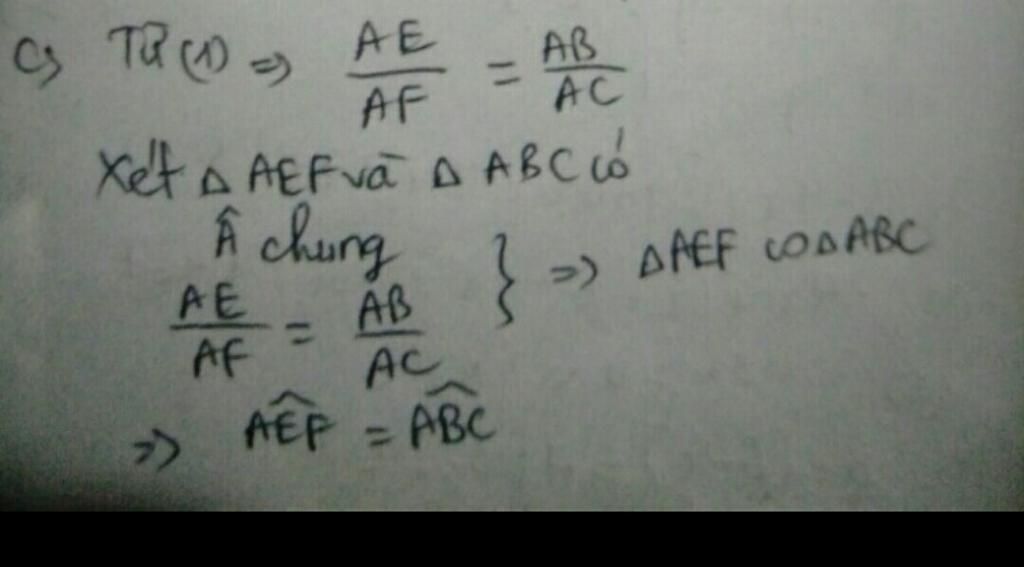 c) Từ (1) => AE/AF = AB/AC
Xét △ AEF và △ ABC có
Â chung
AE/AF = AB/AC } => △AEF ∽ △ABC
=> \widehat{AEF} = \widehat{ABC}